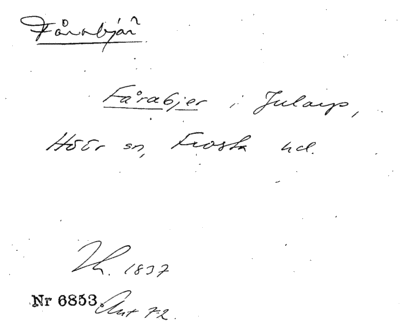 Fårabjär
Fårabjer i Jularp,
Höör sn, Frosta hd.
1837
Nr 6853. Ant 72.